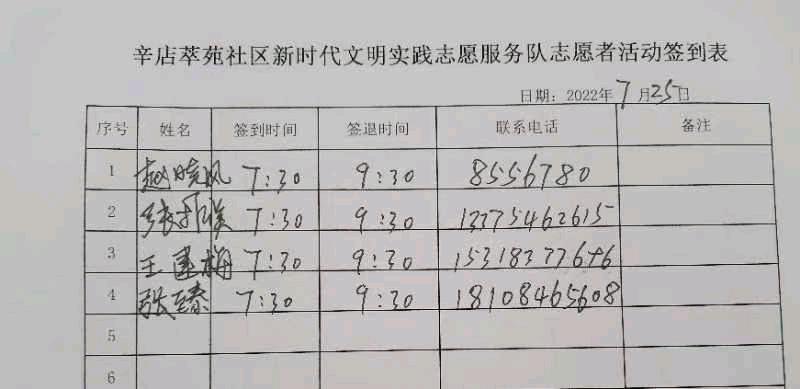 辛店萃苑社区新时代文明实践志愿服务队志愿者活动签到表
日期：2022年7月25日
序号 姓名 签到时间 签退时间 联系电话 备注
1 赵晓凤 7:30 9:30 8556780
2 7:30 9:30 13375462615
3 王建梅 7:30 9:30
4 张至泰 7:30 9:30 18108465608
5
6